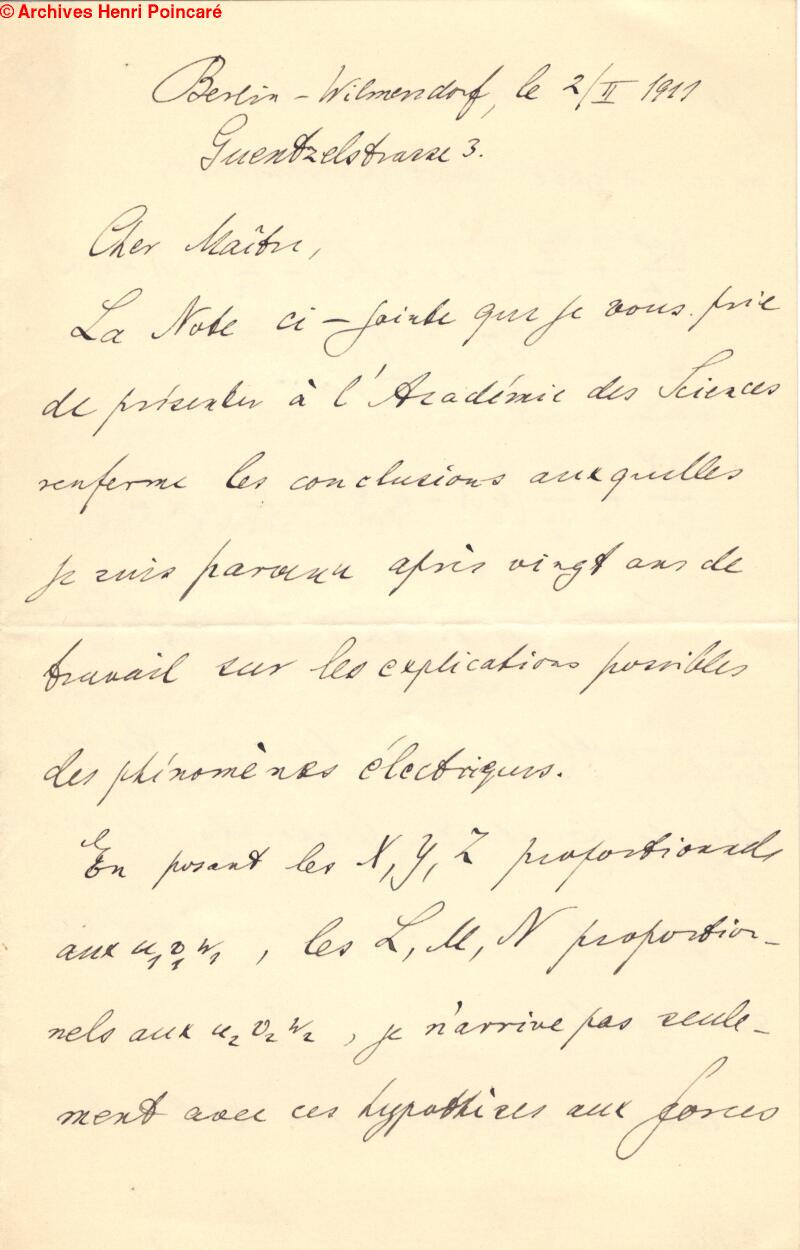 © Archives Henri Poincaré
Berlin – Wilmersdorf, le 2/II 1911
Guentzelstrasse 3.
Cher Maître,
La Note ci – jointe que je vous prie
de présenter à l'Académie des Sciences
renferme les conclusions auxquelles
je suis parvenu après vingt ans de
travail sur les explications possibles
des phénomènes électriques.
En posant les X, Y, Z proportionnels
aux u₁ v₁ w₁, les L, M, N proportion–
nels aux u₂ v₂ w₂, je n'arrive pas seule–
ment avec ces hypothèses aux forces